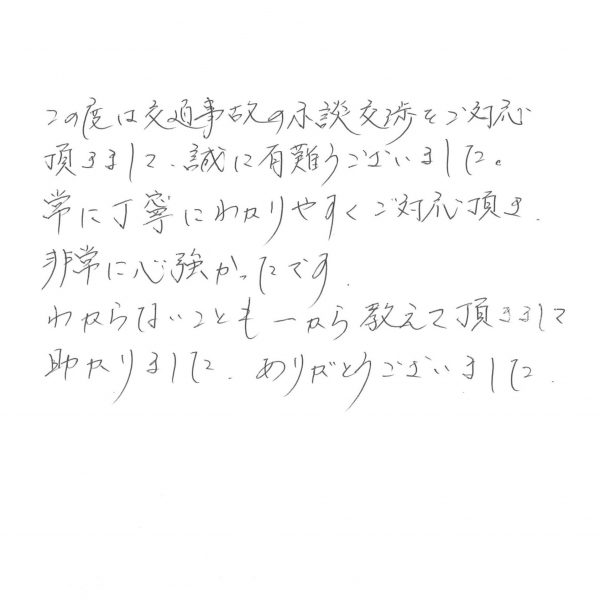 この度は交通事故の示談交渉をご対応
頂きまして、誠に有難うございました。
常に丁寧にわかりやすくご対応頂き、
非常に心強かったです。
わからないことも一から教えて頂きまして
助かりました。ありがとうございました。